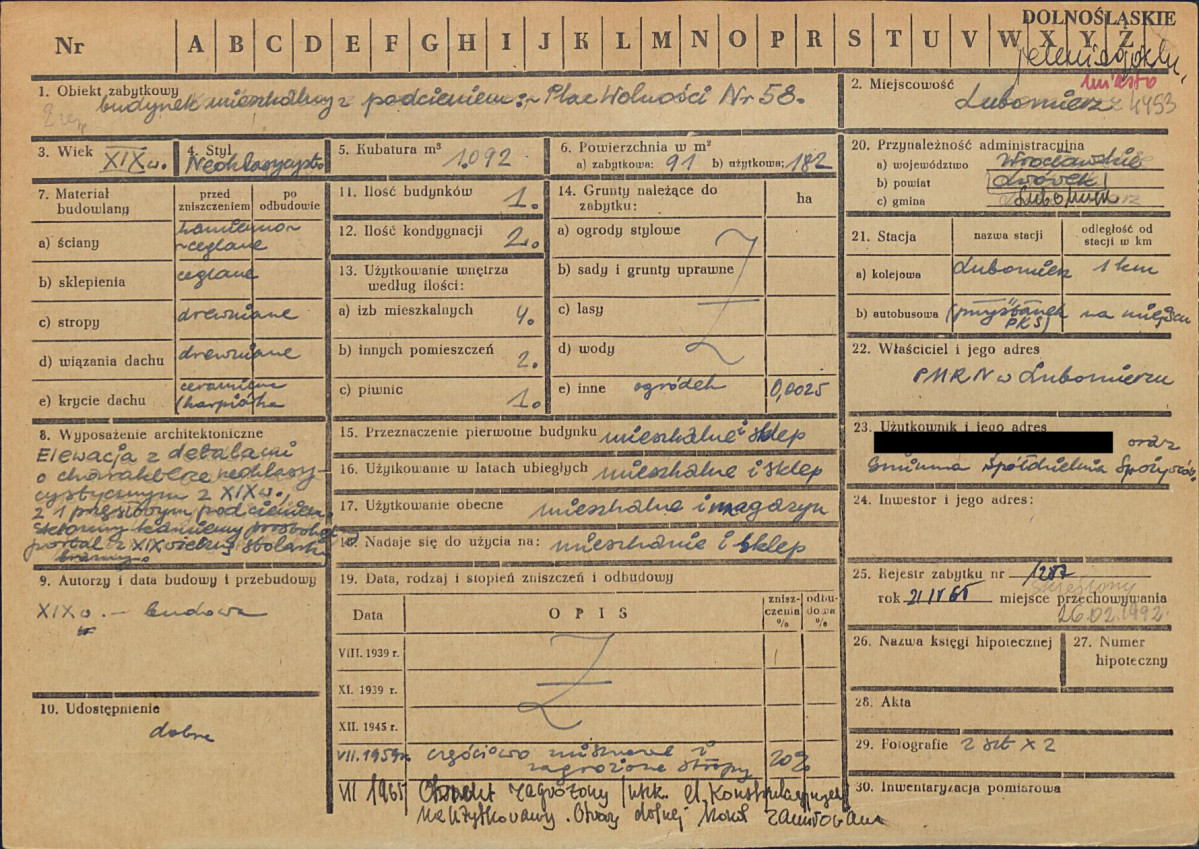 DOLNOŚLĄSKIE
Nr A B C D E F G H I J K L M N O P R S T U V W X Y Z
1. Obiekt zabytkowy
budynek mieszkalny z podcieniem: Plac Wolności Nr 58.
2. Miejscowość
miasto
Lubomierz 4453
3. Wiek XIX w.
4. Styl
5. Kubatura m³ 1.092
6. Powierzchnia w m²
a) zabytkowa: 91 b) użytkowa: 182
7. Materiał budowlany
przed zniszczeniem
po odbudowie
a) ściany
ceglane
b) sklepienia ceglane
c) stropy drewniane
d) wiązania dachu drewniane
e) krycie dachu
/karpiówka
8. Wyposażenie architektoniczne
Elewacja z detalami
o charakterze neoklasy-
cystycznym z XIX w.,
z 1 przęsłowym podcieniem.
9. Autorzy i data budowy i przebudowy
XIX w. — budowa
10. Udostępnienie
dobre
11. Ilość budynków 1.
12. Ilość kondygnacji 2.
13. Użytkowanie wnętrza według ilości:
a) izb mieszkalnych 4.
b) innych pomieszczeń 2.
c) piwnic 1.
14. Grunty należące do zabytku: ha
a) ogrody stylowe
b) sady i grunty uprawne
c) lasy
d) wody
e) inne ogródek 0,0025
15. Przeznaczenie pierwotne budynku mieszkalne i sklep
16. Użytkowanie w latach ubiegłych mieszkalne i sklep
17. Użytkowanie obecne mieszkalne i magazyn
18. Nadaje się do użycia na: mieszkanie i sklep
19. Data, rodzaj i stopień zniszczeń i odbudowy
Data OPIS zniszczenia % odbudowa %
VIII. 1939 r.
XI. 1939 r.
XII. 1945 r.
VII. 1959 r. częściowo i
zagrożone stropy 20%
VII 1965 zagrożony
nieużytkowany. Otwory dolnej
20. Przynależność administracyjna
a) województwo Wrocławskie
b) powiat Lwówek
c) gmina Lubomierz
21. Stacja nazwa stacji odległość od stacji w km
a) kolejowa Lubomierz 1 km
b) autobusowa (przystanek PKS) na miejscu
22. Właściciel i jego adres
PMRN w Lubomierzu
23. Użytkownik i jego adres
oraz
Gminna Spółdzielnia Spożywców
24. Inwestor i jego adres:
25. Rejestr zabytku nr 1287
skreślony
rok 21 IV 65 miejsce przechowywania
26.02.1992
26. Nazwa księgi hipotecznej
27. Numer hipoteczny
28. Akta
29. Fotografie 2 szt x 2
30. Inwentaryzacja pomiarowa